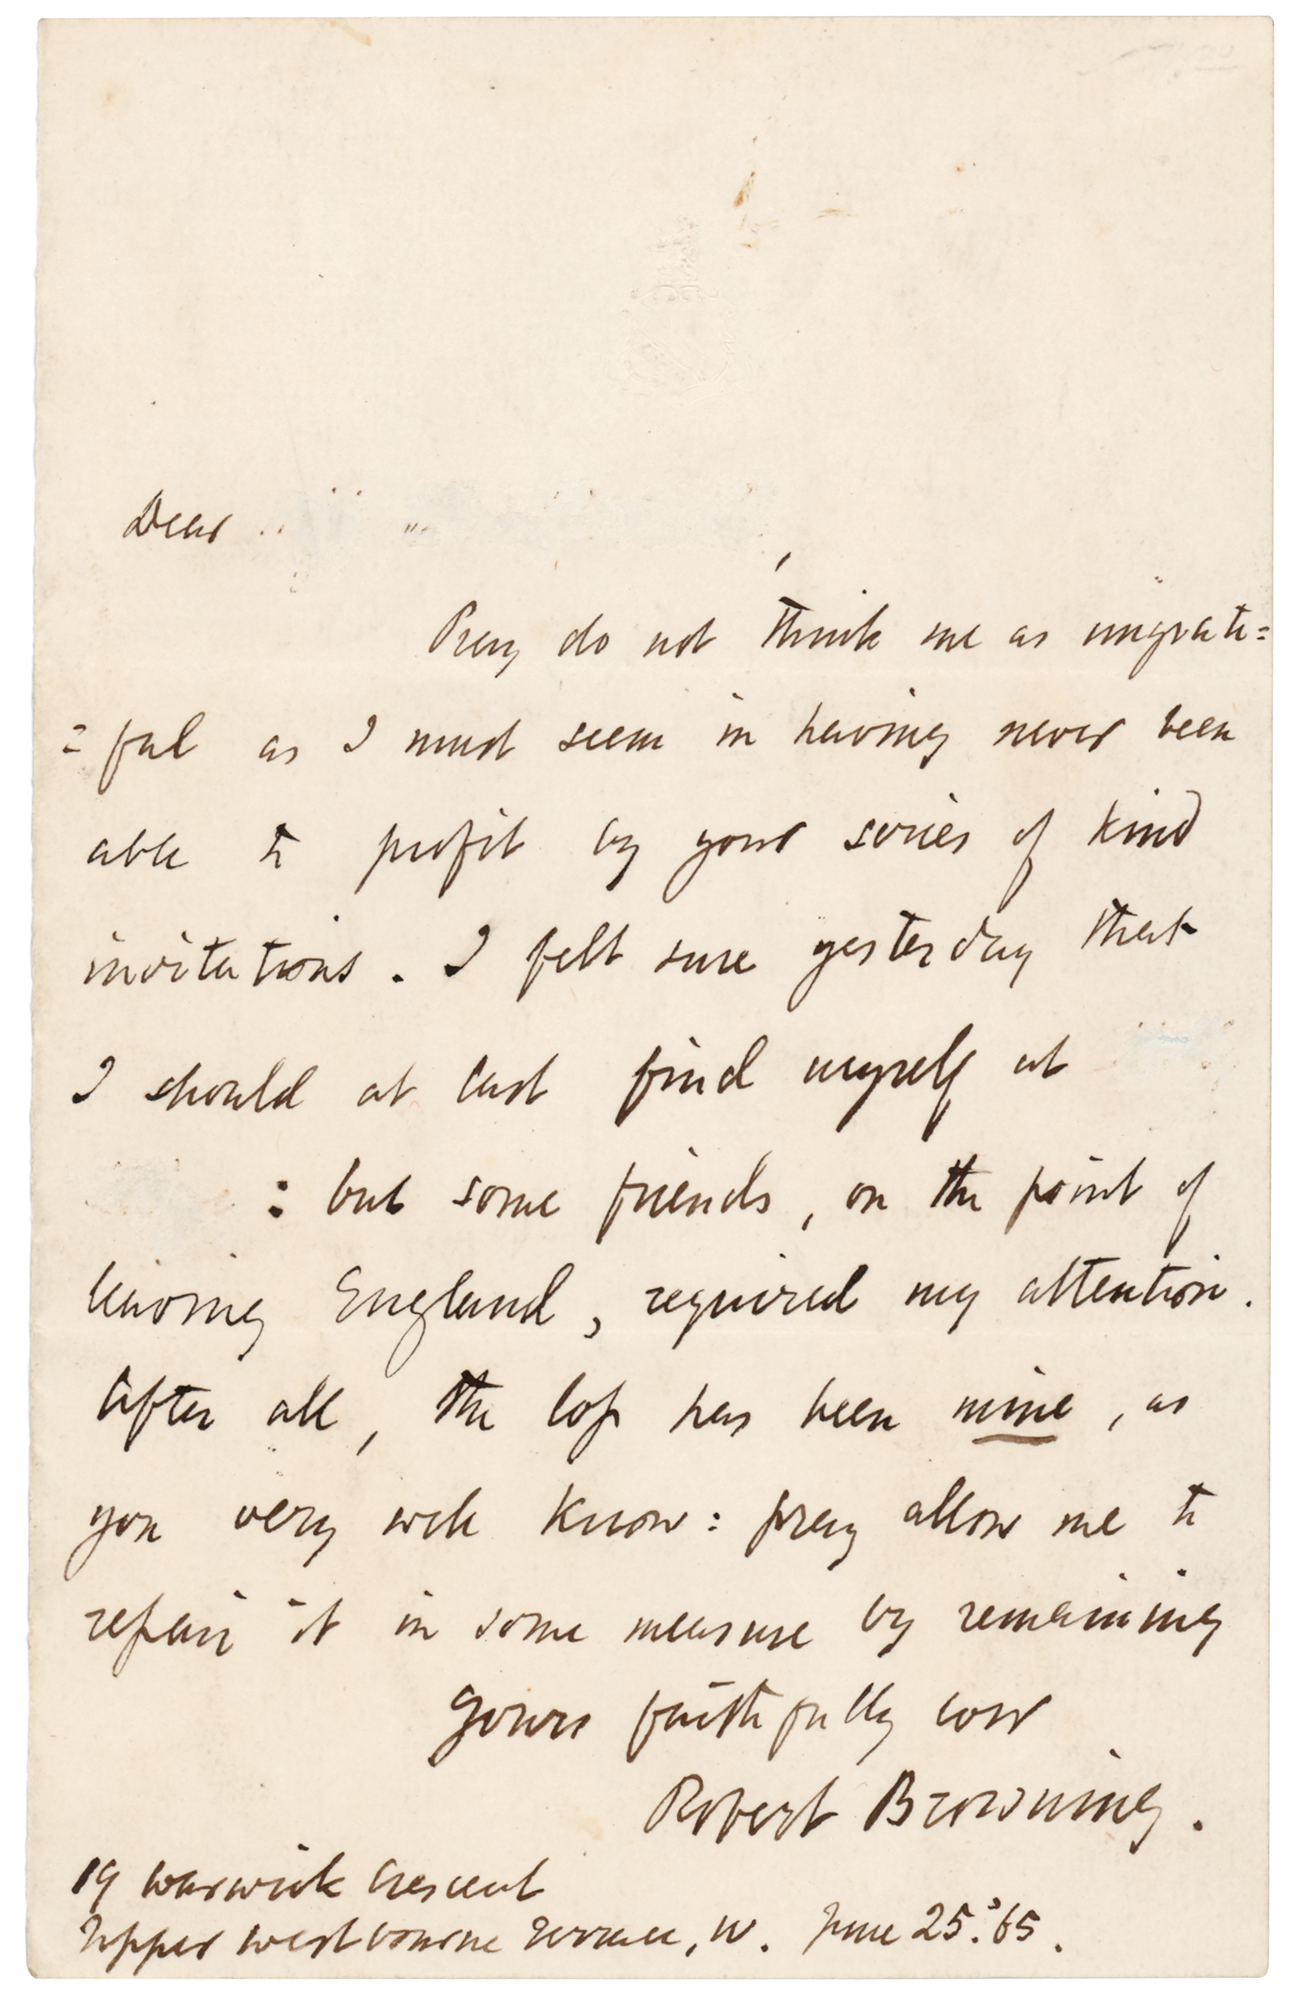 Dear
Pray do not think me as ungrate=
=ful as I must seem in having never been
able to profit by your series of kind
invitations. I felt sure yesterday that
I should at last find myself at
: but some friends, on the point of
leaving England, required my attention.
After all, the loss has been mine, as
you very well know: pray allow me to
repair it in some measure by remaining
Yours faithfully ever
Robert Browning.
19 Warwick Crescent
Upper Westbourne Terrace, W. June 25. '65.